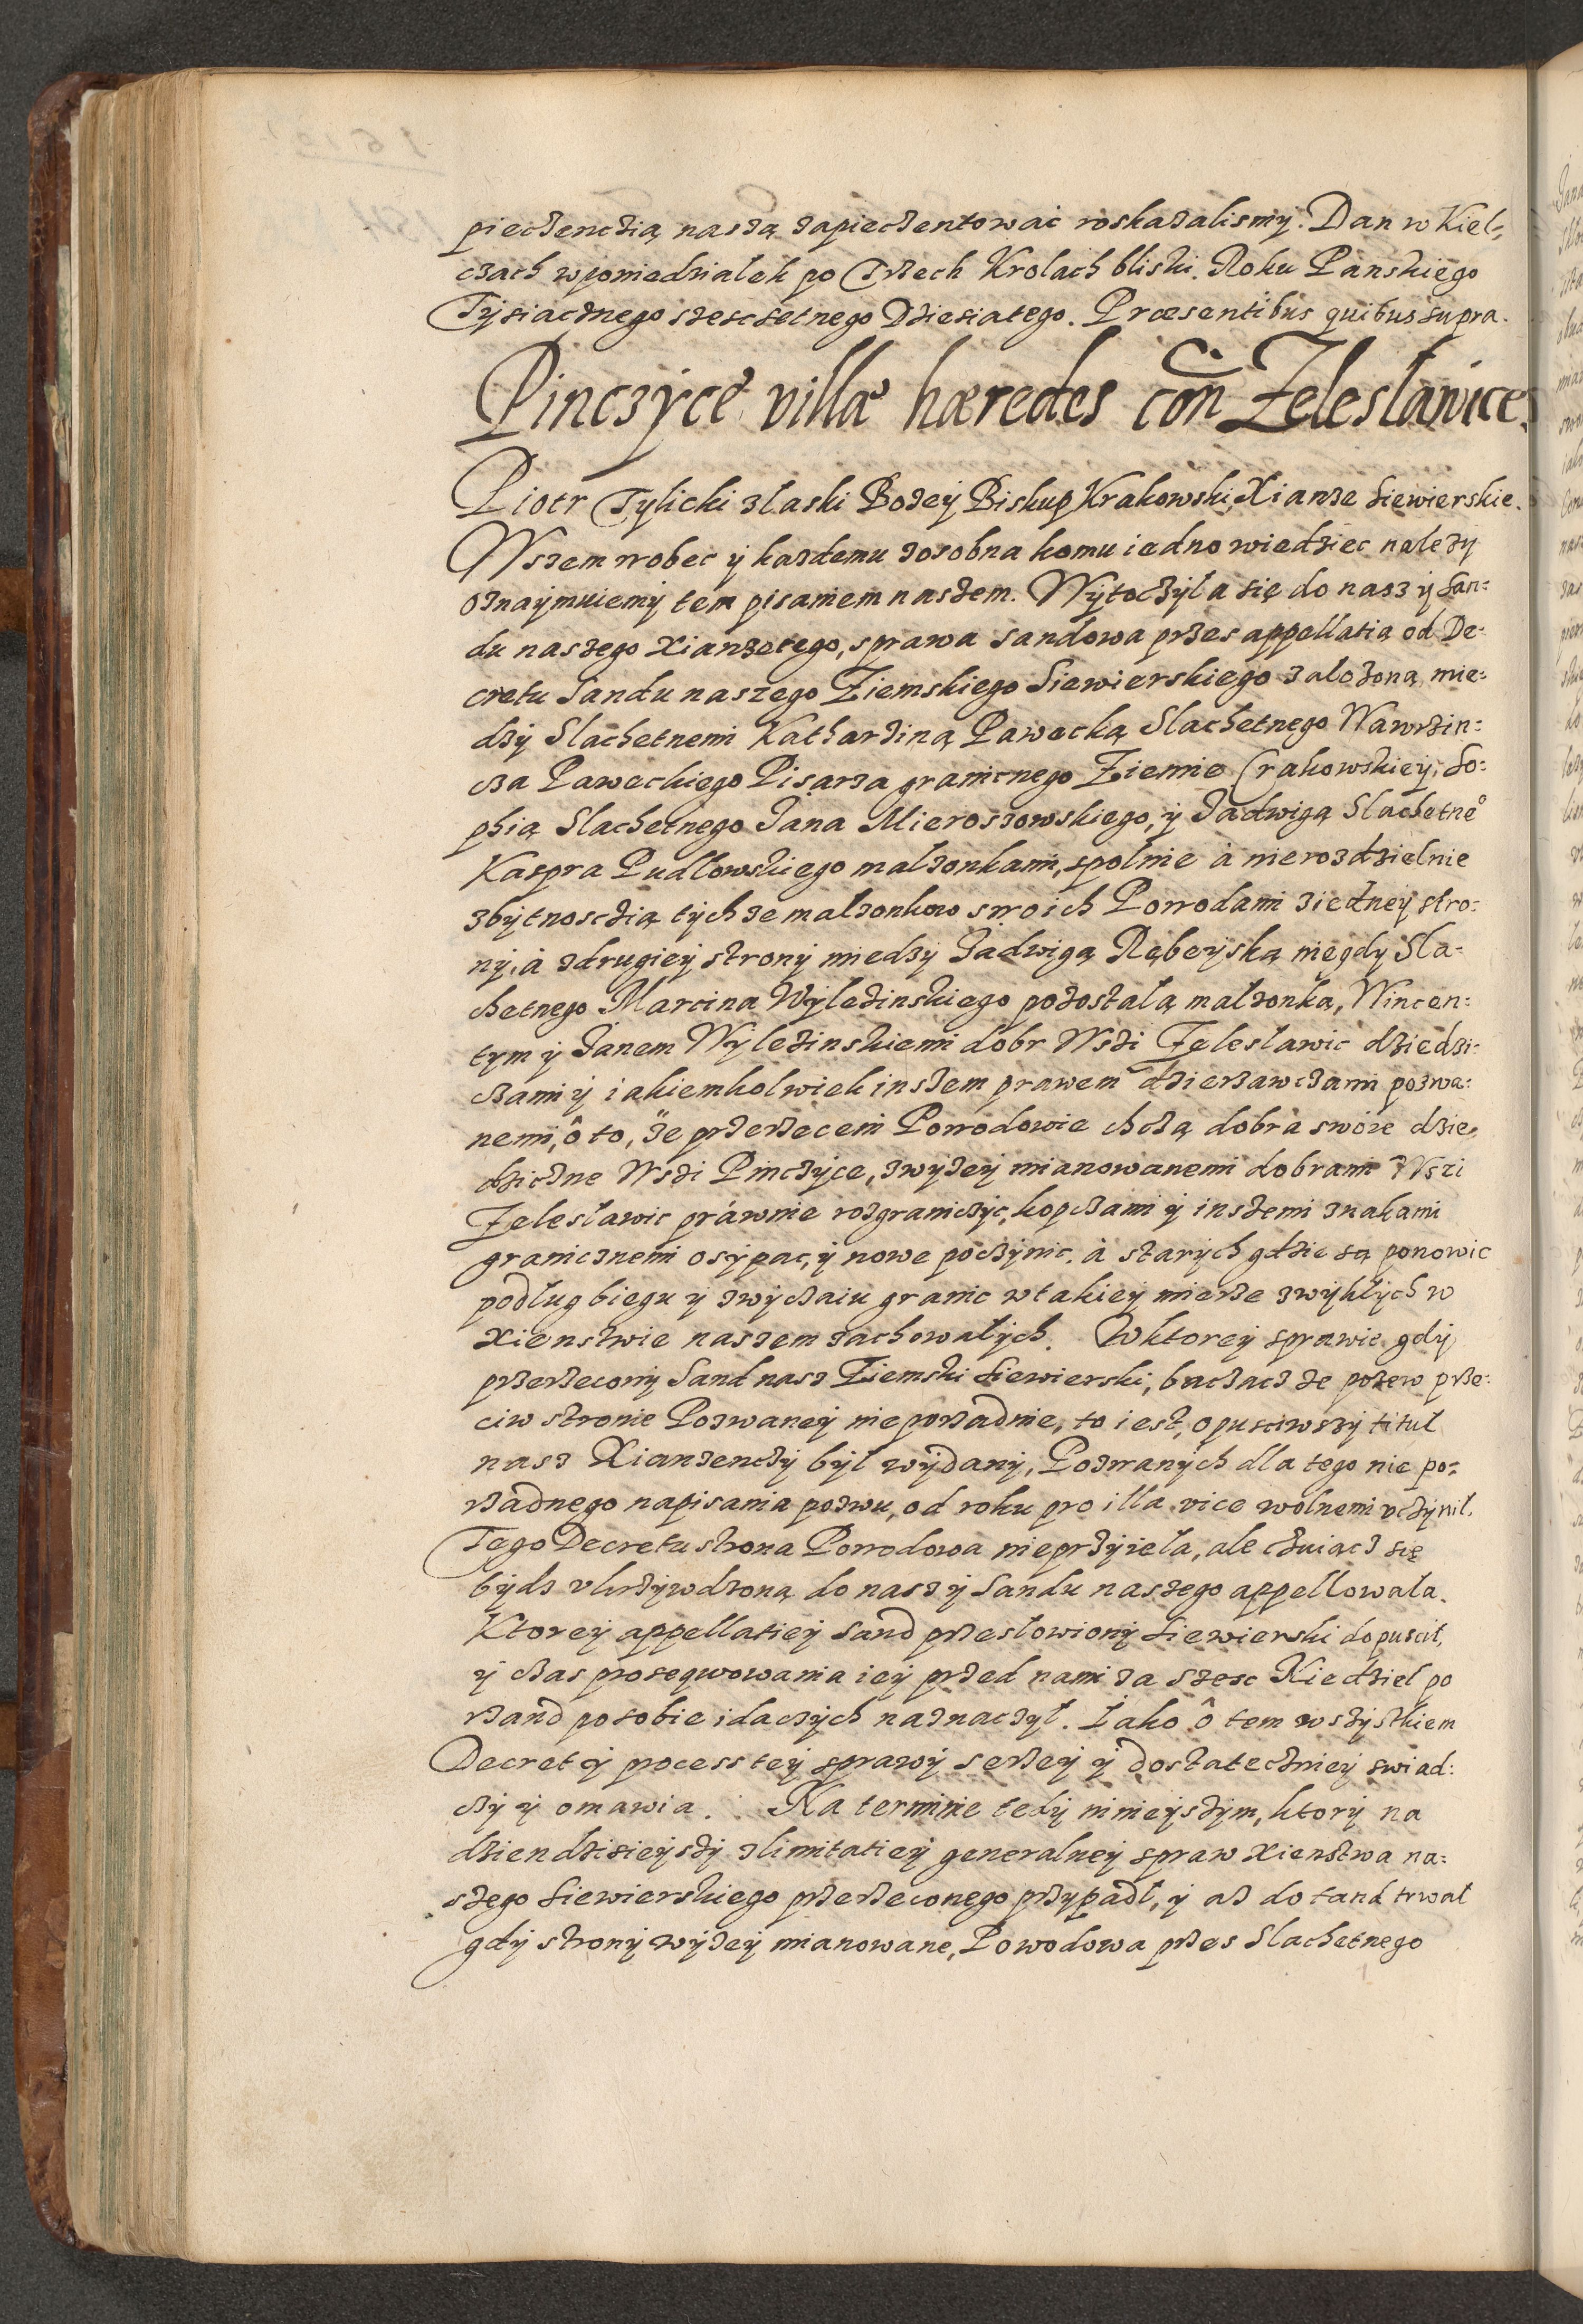 pieczenczią naszą zapieczentowaic roskazalismy. Dan w Kiel=
czach wponiedzialek po Trzech Krolach bliski. Roku Panskiego
Tysiacznego szescsetnego Dziesiatego. Præsentibus quibus supra.
Pinczyce villæ hæredes coñ Zelesławice.
Piotr Tylicki złaski Bozey Biskup Krakowski, Xianze Siewierskie.
Wszem wobec y kazdemu zosobna komu iedno wiedziec nalezy
oznaymuiemy tem pisaniem naszem. Wytoczyla się do nasz y San=
du naszego Xianzetego, sprawa sandowa przes appellatią od De=
cretu Sandu naszego Ziemskiego Siewierskiego zalozoną mie=
dzy Slachetnemi Katharziną Pawecką Slachetnego Wawrzin=
cza Paweckiego Pisarza granicnego Ziemie Crakowskiey, So=
phią Slachetnego Jana Mieroszowskiego, y Jadwigą Slachetneº
Kaspra Pudłowskiego malzonkami, spolnie à nierozdzielnie
zbytnosczią tychze malzonkow swoich Powodami ziedney stro=
ny, à zdrugiey strony miedzy Jadwigą Rębeyską niegdy Sla=
chetnego Marcina Wylezinskiego pozostałą malzonką, Wincen=
tym y Janem Wylezinskiemi dobr Wszi Zelesławic dziedzi=
czami y iakiemkolwiek inszem prawem dzierzawczami pozwa=
nemi, ô to, ze przerzeceni Powodowie chczą dobra swoie dzie=
dziczne Wszi Pinczyce, zwyzey mianowanemi dobrami Wszi
Zelesławic prawnie rozgraniczyc, kopczami y inszemi znakami
granicznemi osypac, y nowe poczynic, à starych gdzie są ponowic
podług biegu y zwyczaiu granic wtakiey mierze zwykłych w
xienstwie naszem zachowałych. Wktorey sprawie gdy
przerzecony Sand nasz Ziemski Siewierski, baczacz ze pozew prze=
ciw stronie Pozwaney nieporzadnie, to iest, opusciwszy titul
nasz Xianzenczy był wydany, Pozwanych dla tego nie po=
rzadnego napisania pozwu, od roku pro illa vice wolnemi vczynił.
Tego Decretu strona Powodowa nieprzyieła, ale czuiącz się
bydz vkrzywdzoną do nasz y Sandu naszego appellowała.
Ktorey appellatiey Sand przesłowiony Siewierski dopuscił,
y czas prosequowania iey przed nami za szesc Niedziel po
rzand po sobie idaczych naznaczył. Iako ô tem wszystkiem
Decret y process tey sprawy serzey y dostateczniey swiad=
czy y omawia. Na terminie tedy ninieyszym, ktory na
dzien dzisieyszy zlimitatiey generalney spraw Xienstwa na=
szego Siewierskiego przerzeconego przypadł, y az do tand trwał
gdy strony wyzey mianowane, Powodowa przes Slachetnego